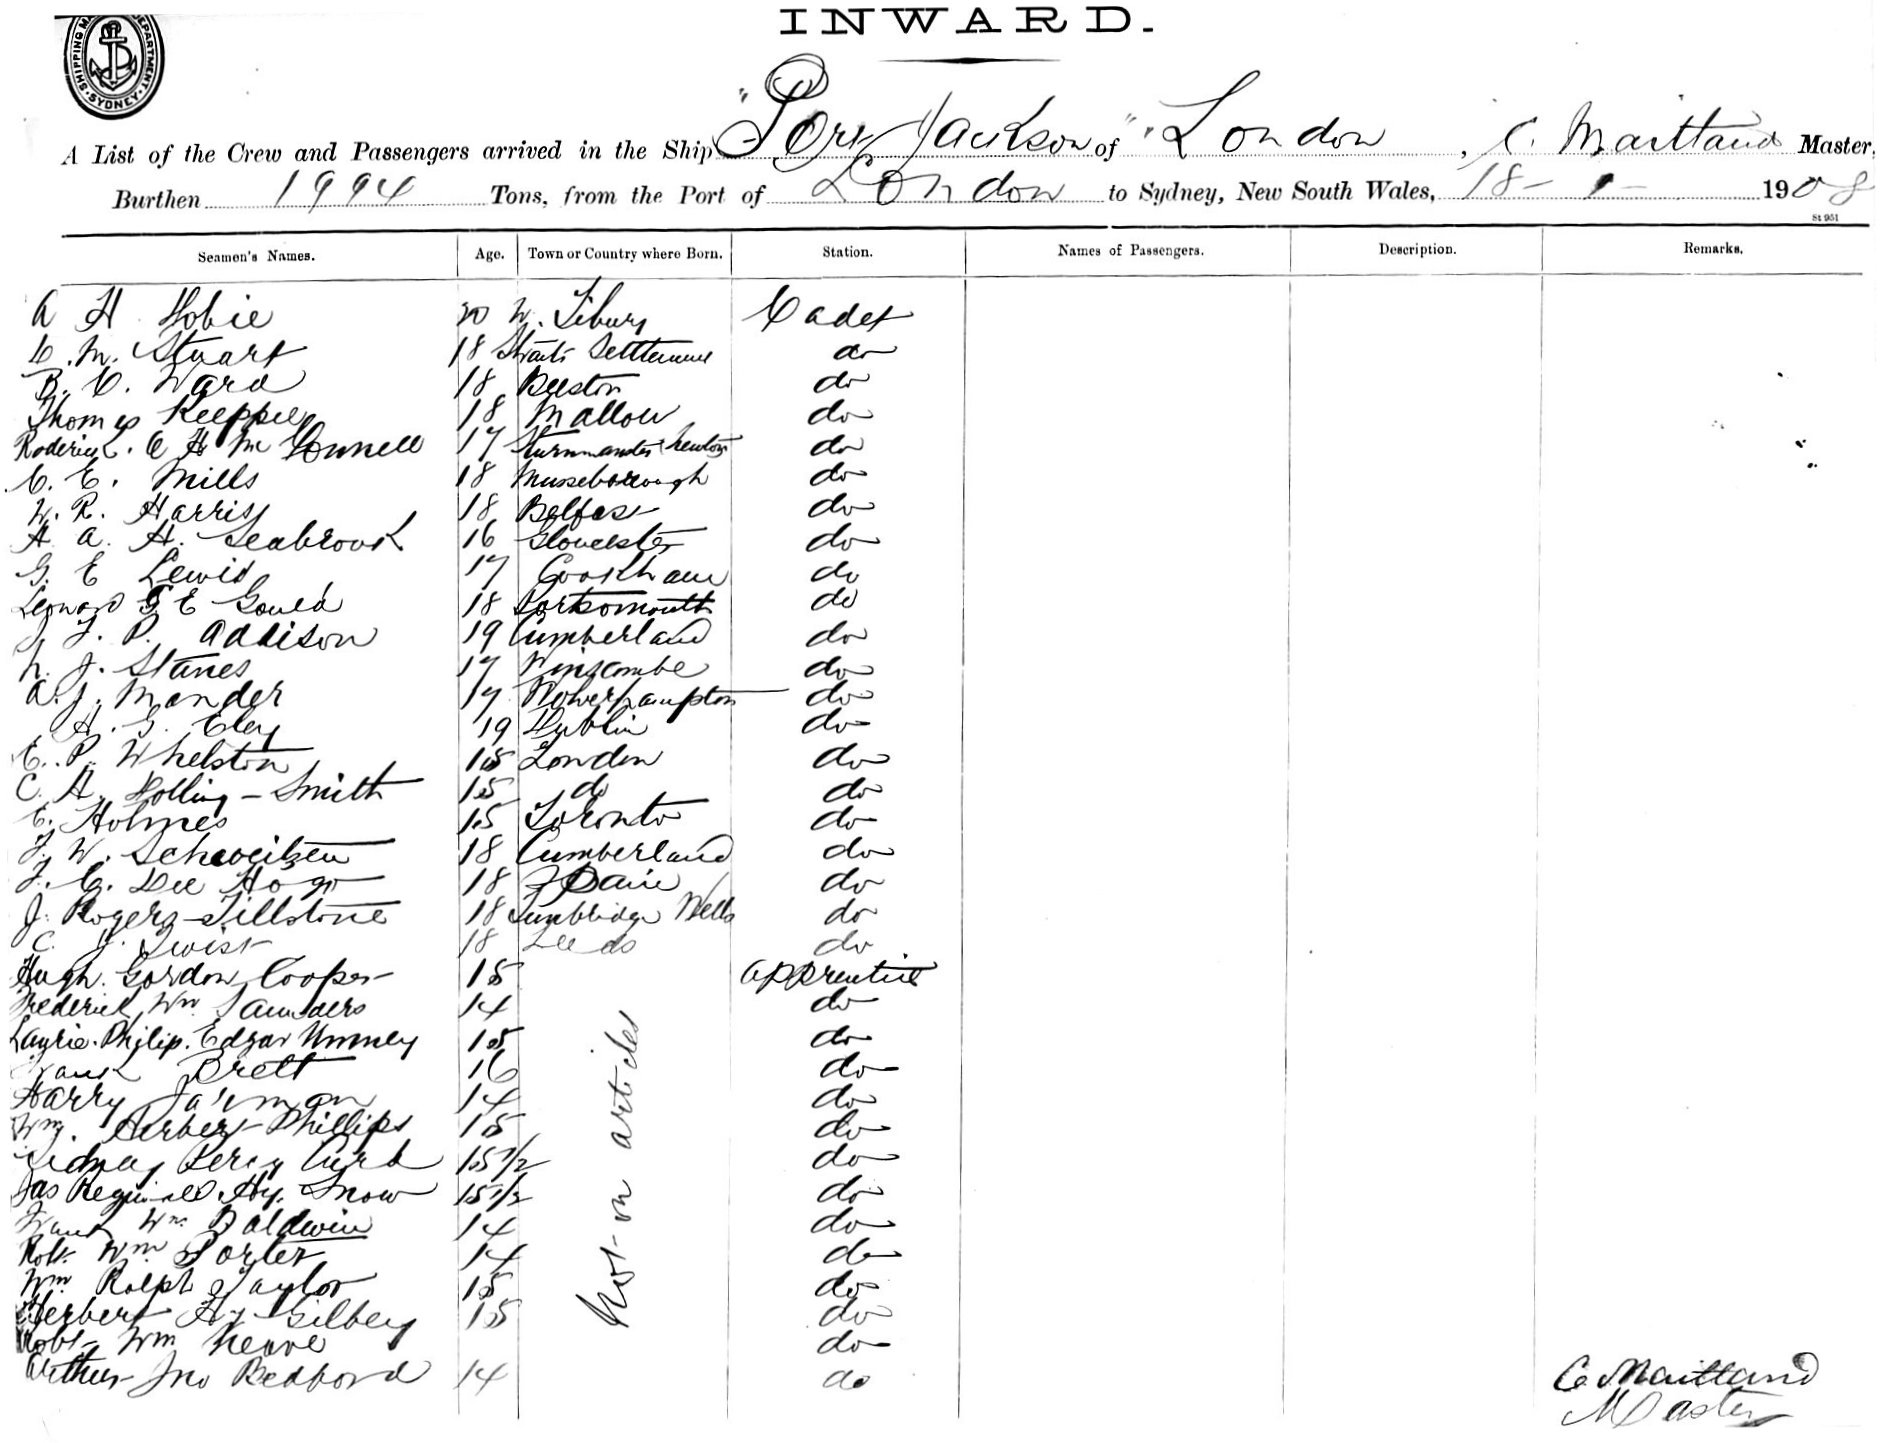 INWARD.
SHIPPING MA DEPARTMENT. SYDNEY.
A List of the Crew and Passengers arrived in the Ship "Port Jackson" of "London , C. Maitland Master,
Burthen 1994 Tons, from the Port of London to Sydney, New South Wales, 18 - 1 - 1908
St 951
Seamen's Names. Age. Town or Country where Born. Station. Names of Passengers. Description. Remarks.
A H Hobie 20 W. Cadet
C. M. Stuart 18 Straits Settlements do
B. C. Ward 18 Beeston do
Thomas Keeppel 18 Mallow do
Roderick. C H Mc Connell 17 Sturminster Newton do
C. E. Mills 18 Musselborough do
W. R. Harris 18 Belfast do
A. A. H. Seabrook 16 Gloucester do
G. E Lewis 17 Cookham do
Leonard G E Gould 18 Portsmouth do
J. F. P. Addison 19 Cumberland do
N. J. Stanes 17 Winscombe do
A. J. Mander 17 Wolverhampton do
A. G. Eley 19 Dublin do
C. P. Whelston 15 London do
C. A. Holling-Smith 15 do do
C. Holmes 15 Toronto do
F. W. 18 Cumberland do
J. C. Dee 18 Spain do
J. Rogers-Tillstone 18 Tunbridge Wells do
C. J. Twist 18 Leeds do
Hugh Gordon Cooper 15 Apprentice
Frederick Wm Saunders 14 do
Laurie. Philip. Edgar Umney 15 do
Frank Brett 16 do
Harry Jarman 14 do
Wm. Herbert Phillips 15 do
Sidney Percy Curd 15 1/2 do
Jas Reginald Hy. Snow 15 1/2 do
Frank Wm. Baldwin 14 do
Robt. Wm Porter 14 do
Wm Ralph Taylor 15 do
Herbert Hy Gilbey 15 do
Robt Wm Neave do
Arthur Jno Bedford 14 do
Not on articles
C. Maitland
Master